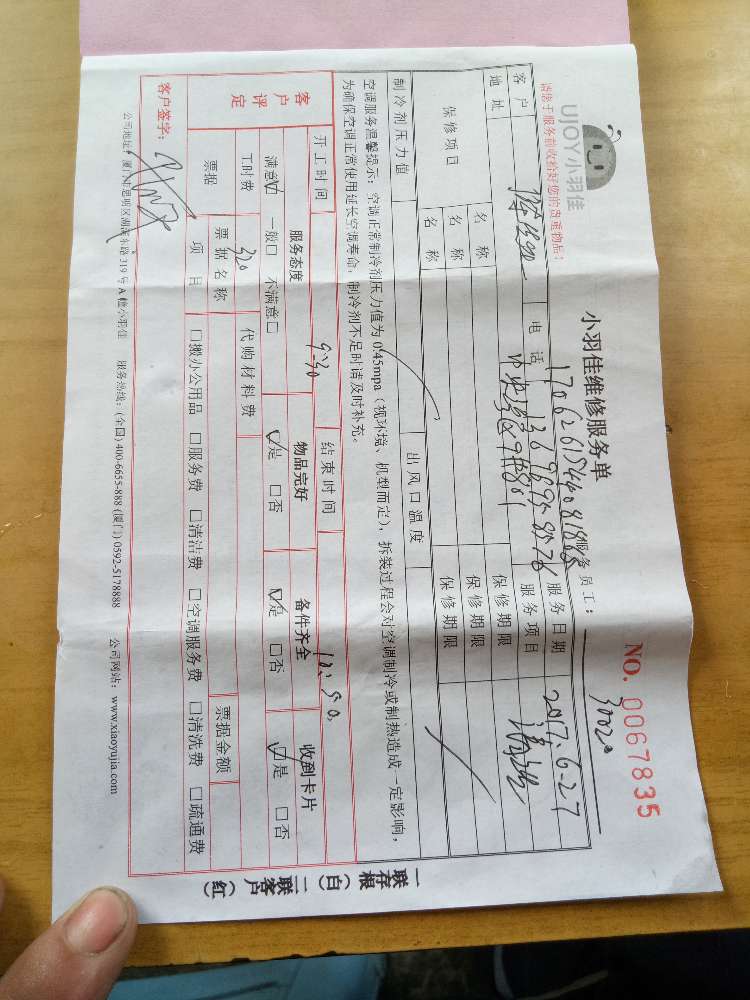 UJOY小羽佳
小羽佳维修服务单
NO. 0067835
请您于服务前收拾好您的贵重物品:
服务员工: 30020
客户 电话 服务日期 2017.6-27
地址 服务项目 清洗
保修项目 名称 保修期限
名称 保修期限
名称 保修期限
制冷剂压力值 出风口温度
空调服务温馨提示:空调正常制冷剂压力值为 0.45mpa(视环境、机型而定),拆装过程会对空调制冷或制热造成一定影响,
为确保空调正常使用延长空调寿命,制冷剂不足时请及时补充。
开工时间 9:30 结束时间
客户评定 服务态度 物品完好 备件齐全 收到卡片
满意☑ 一般□ 不满意□ ☑是 □否 ☑是 □否 ☑是 □否
工时费 320 代购材料费
票据 票据名称 票据金额
项目 □搬办公用品 □服务费 □清洁费 □空调服务费 □清洗费 □疏通费
客户签字:
公司地址:厦门市思明区湖滨东路 319 号 A 幢小羽佳 服务热线:(全国) 400-6655-888 (厦门) 0592-5178888 公司网站:www.xiaoyujia.com
一联存根(白) 二联客户(红)